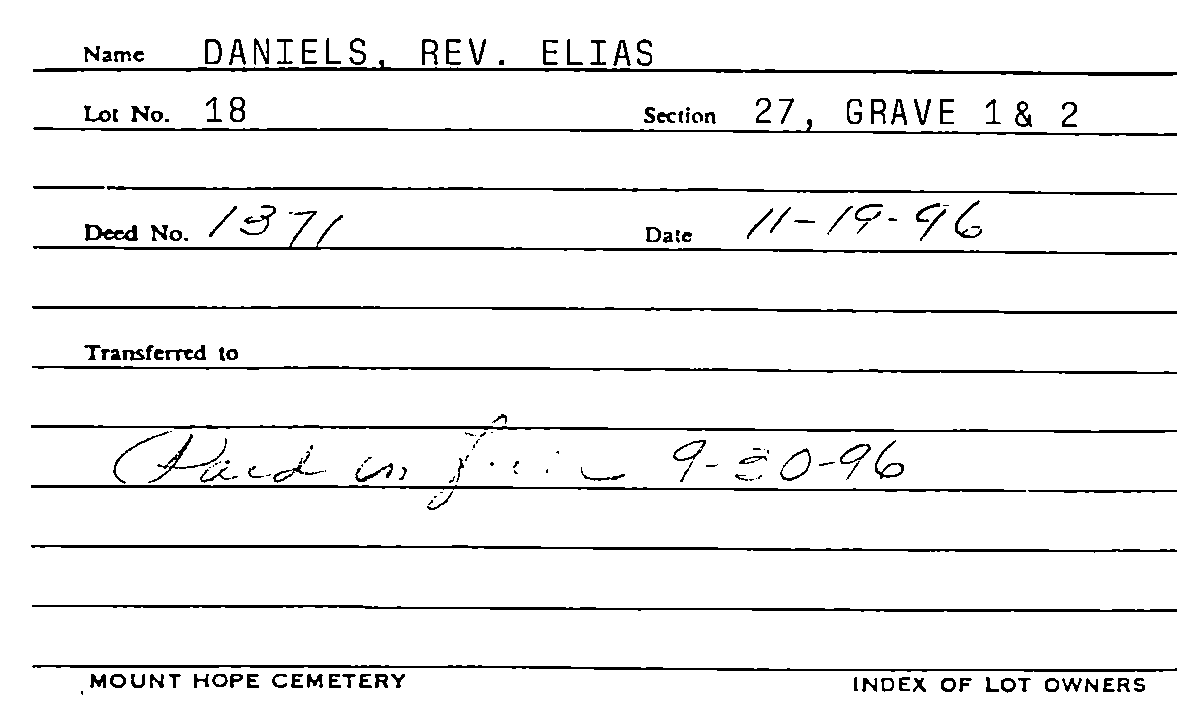 Name DANIELS, REV. ELIAS
Lot No. 18 Section 27, GRAVE 1 & 2
Deed No. 1371 Date 11-19-96
Transferred to
Paid in full 9-30-96
MOUNT HOPE CEMETERY INDEX OF LOT OWNERS